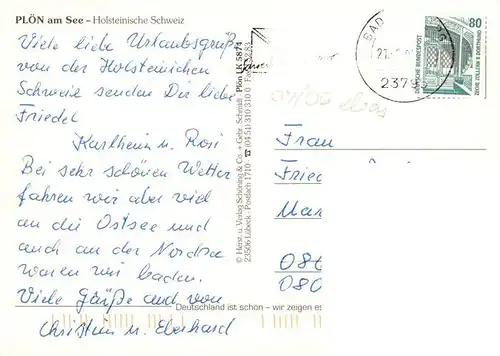 PLÖN am See – Holsteinische Schweiz
Viele liebe Urlaubsgrüße
von der Holsteinichen
Schweiz senden Dir liebe
Friedel
Karlheinz u. Rosi
Bei sehr schönen Wetter
fahren wir aber viel
an die Ostsee und
auch an der Nordsee
waren wir baden.
Viele Grüße auch von
Christin u. Eberhard
Plön LK 5874
© Herst. u. Verlag Schöning & Co. + Gebr. Schmidt
23506 Lübeck · Postfach 1710 ☎ (04 51) 310 310
Deutschland ist schön – wir zeigen es
BAD
23795
80
DEUTSCHE BUNDESPOST
ZECHE ZOLLERN II DORTMUND
Frau
Fried
Mar
086
080